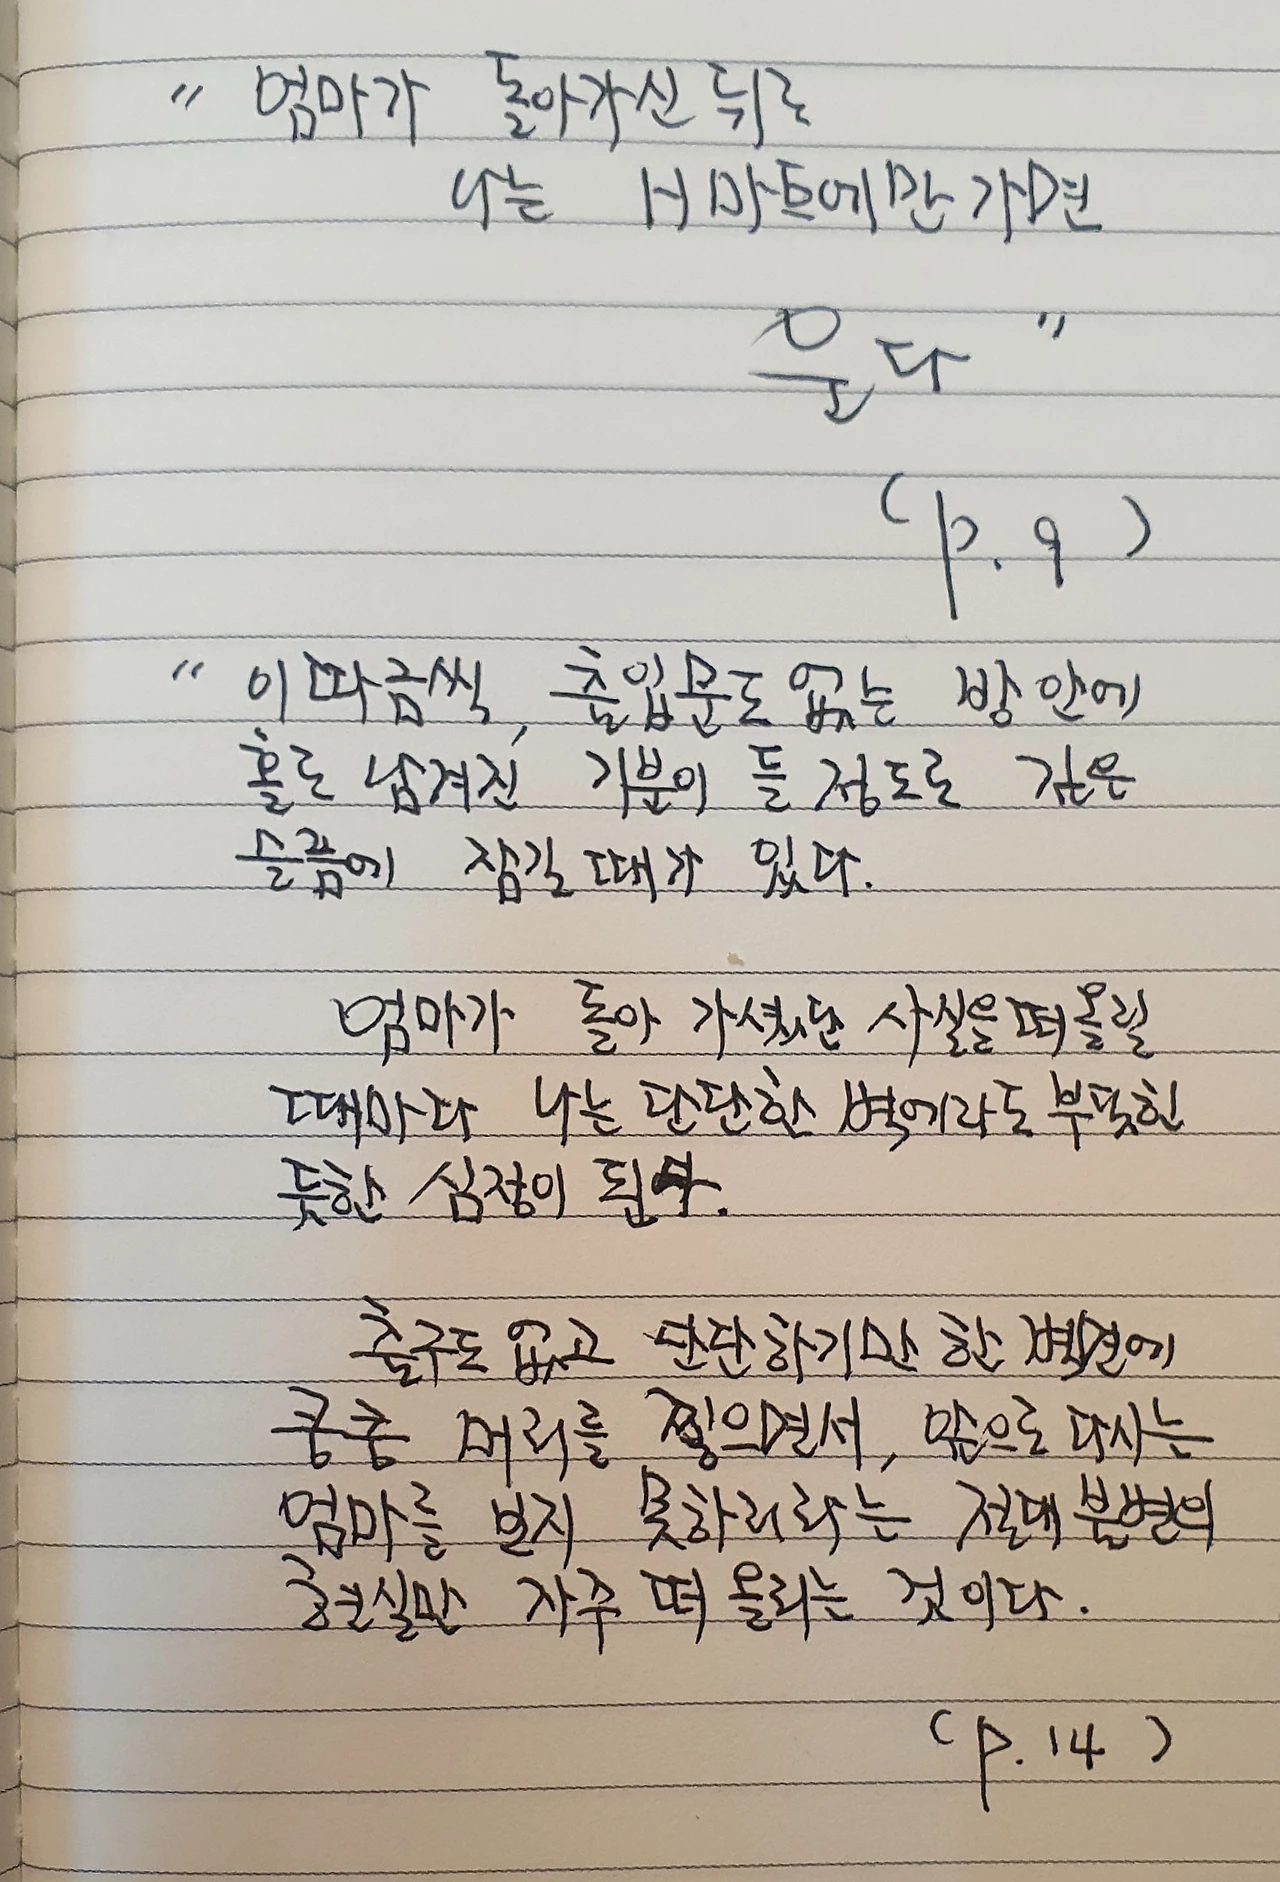 " 엄마가 돌아가신 뒤로
나는 H마트에만 가면
운다 "
(p. 9)
" 이따금씩, 출입문도 없는 방 안에
홀로 남겨진 기분이 들 정도로 깊은
슬픔에 잠길 때가 있다.
엄마가 돌아 가셨단 사실을 떠올릴
때마다 나는 단단한 벽에라도 부딪힌
듯한 심정이 된다.
출구도 없고 단단하기만 한 벽면에
쿵쿵 머리를 찧으면서, 앞으로 다시는
엄마를 보지 못하리라는 절대불변의
현실만 자주 떠올리는 것이다.
(p. 14)